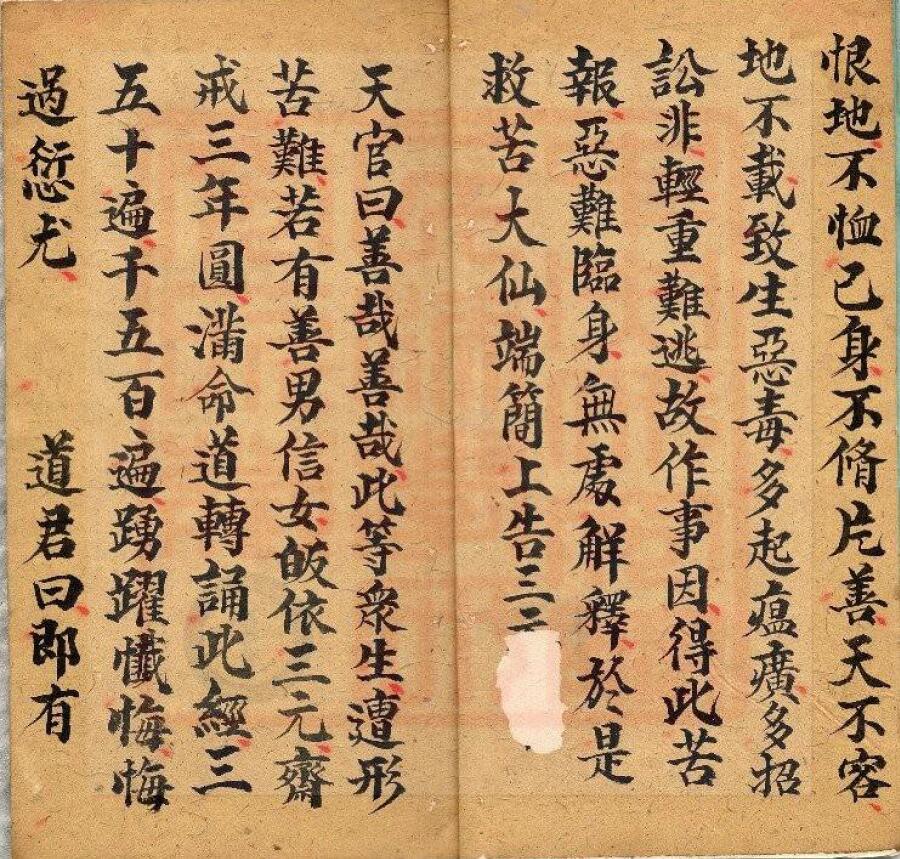 恨地不恤己身不脩片善天不容
地不載致生惡毒多起瘟癀多招
訟非輕重難逃故作事因得此苦
報惡難臨身無處解釋於是
救苦大仙端簡上告三
天官曰善哉善哉此等衆生遭形
苦難若有善男信女皈依三元齋
戒三年圓滿命道轉誦此經三
五十遍千五百遍踴躍懺悔悔
過愆尤 道君曰即有